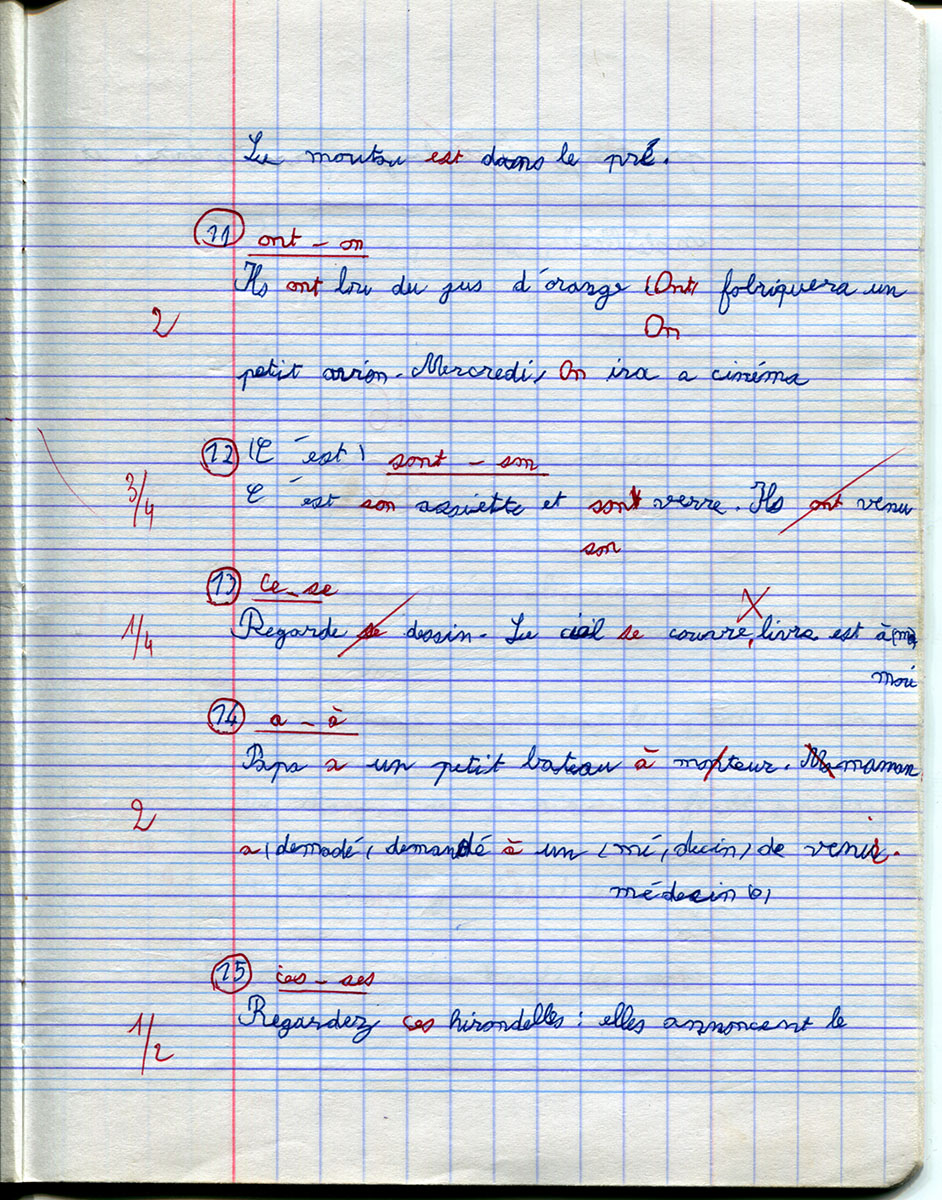 Le mouton est dans le pré.
11 ont - on
Ils ont bu du jus d'orange (Ont) fabriquera un
2
On
petit avion. Mercredi, On ira a cinéma
12 (C'est) sont - son
3/4
C'est son assiette et sont verre. Ils ont venu
son
13 ce - se
1/4
Regarde se dessin. Le ciel se couvre, livre est à (m
moi
14 a - à
Papa a un petit bateau à moteur. Ma maman
2
a (demadé) demandé à un (mé,duin) de venir.
médecin (6)
15 ces - ses
Regardez ces hirondelles : elles annoncent le
1/2